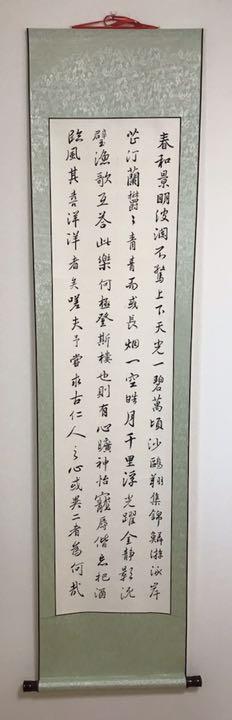 春和景明波瀾不驚上下天光一碧萬頃沙鷗翔集錦鱗游泳岸
芷汀蘭欝〻青青而或長烟一空皓月千里浮光躍金靜影沈
璧漁歌互答此樂何極登斯樓也則有心曠神怡寵辱偕忘把酒
臨風其喜洋洋者矣嗟夫予嘗求古仁人之心或異二者爲何哉